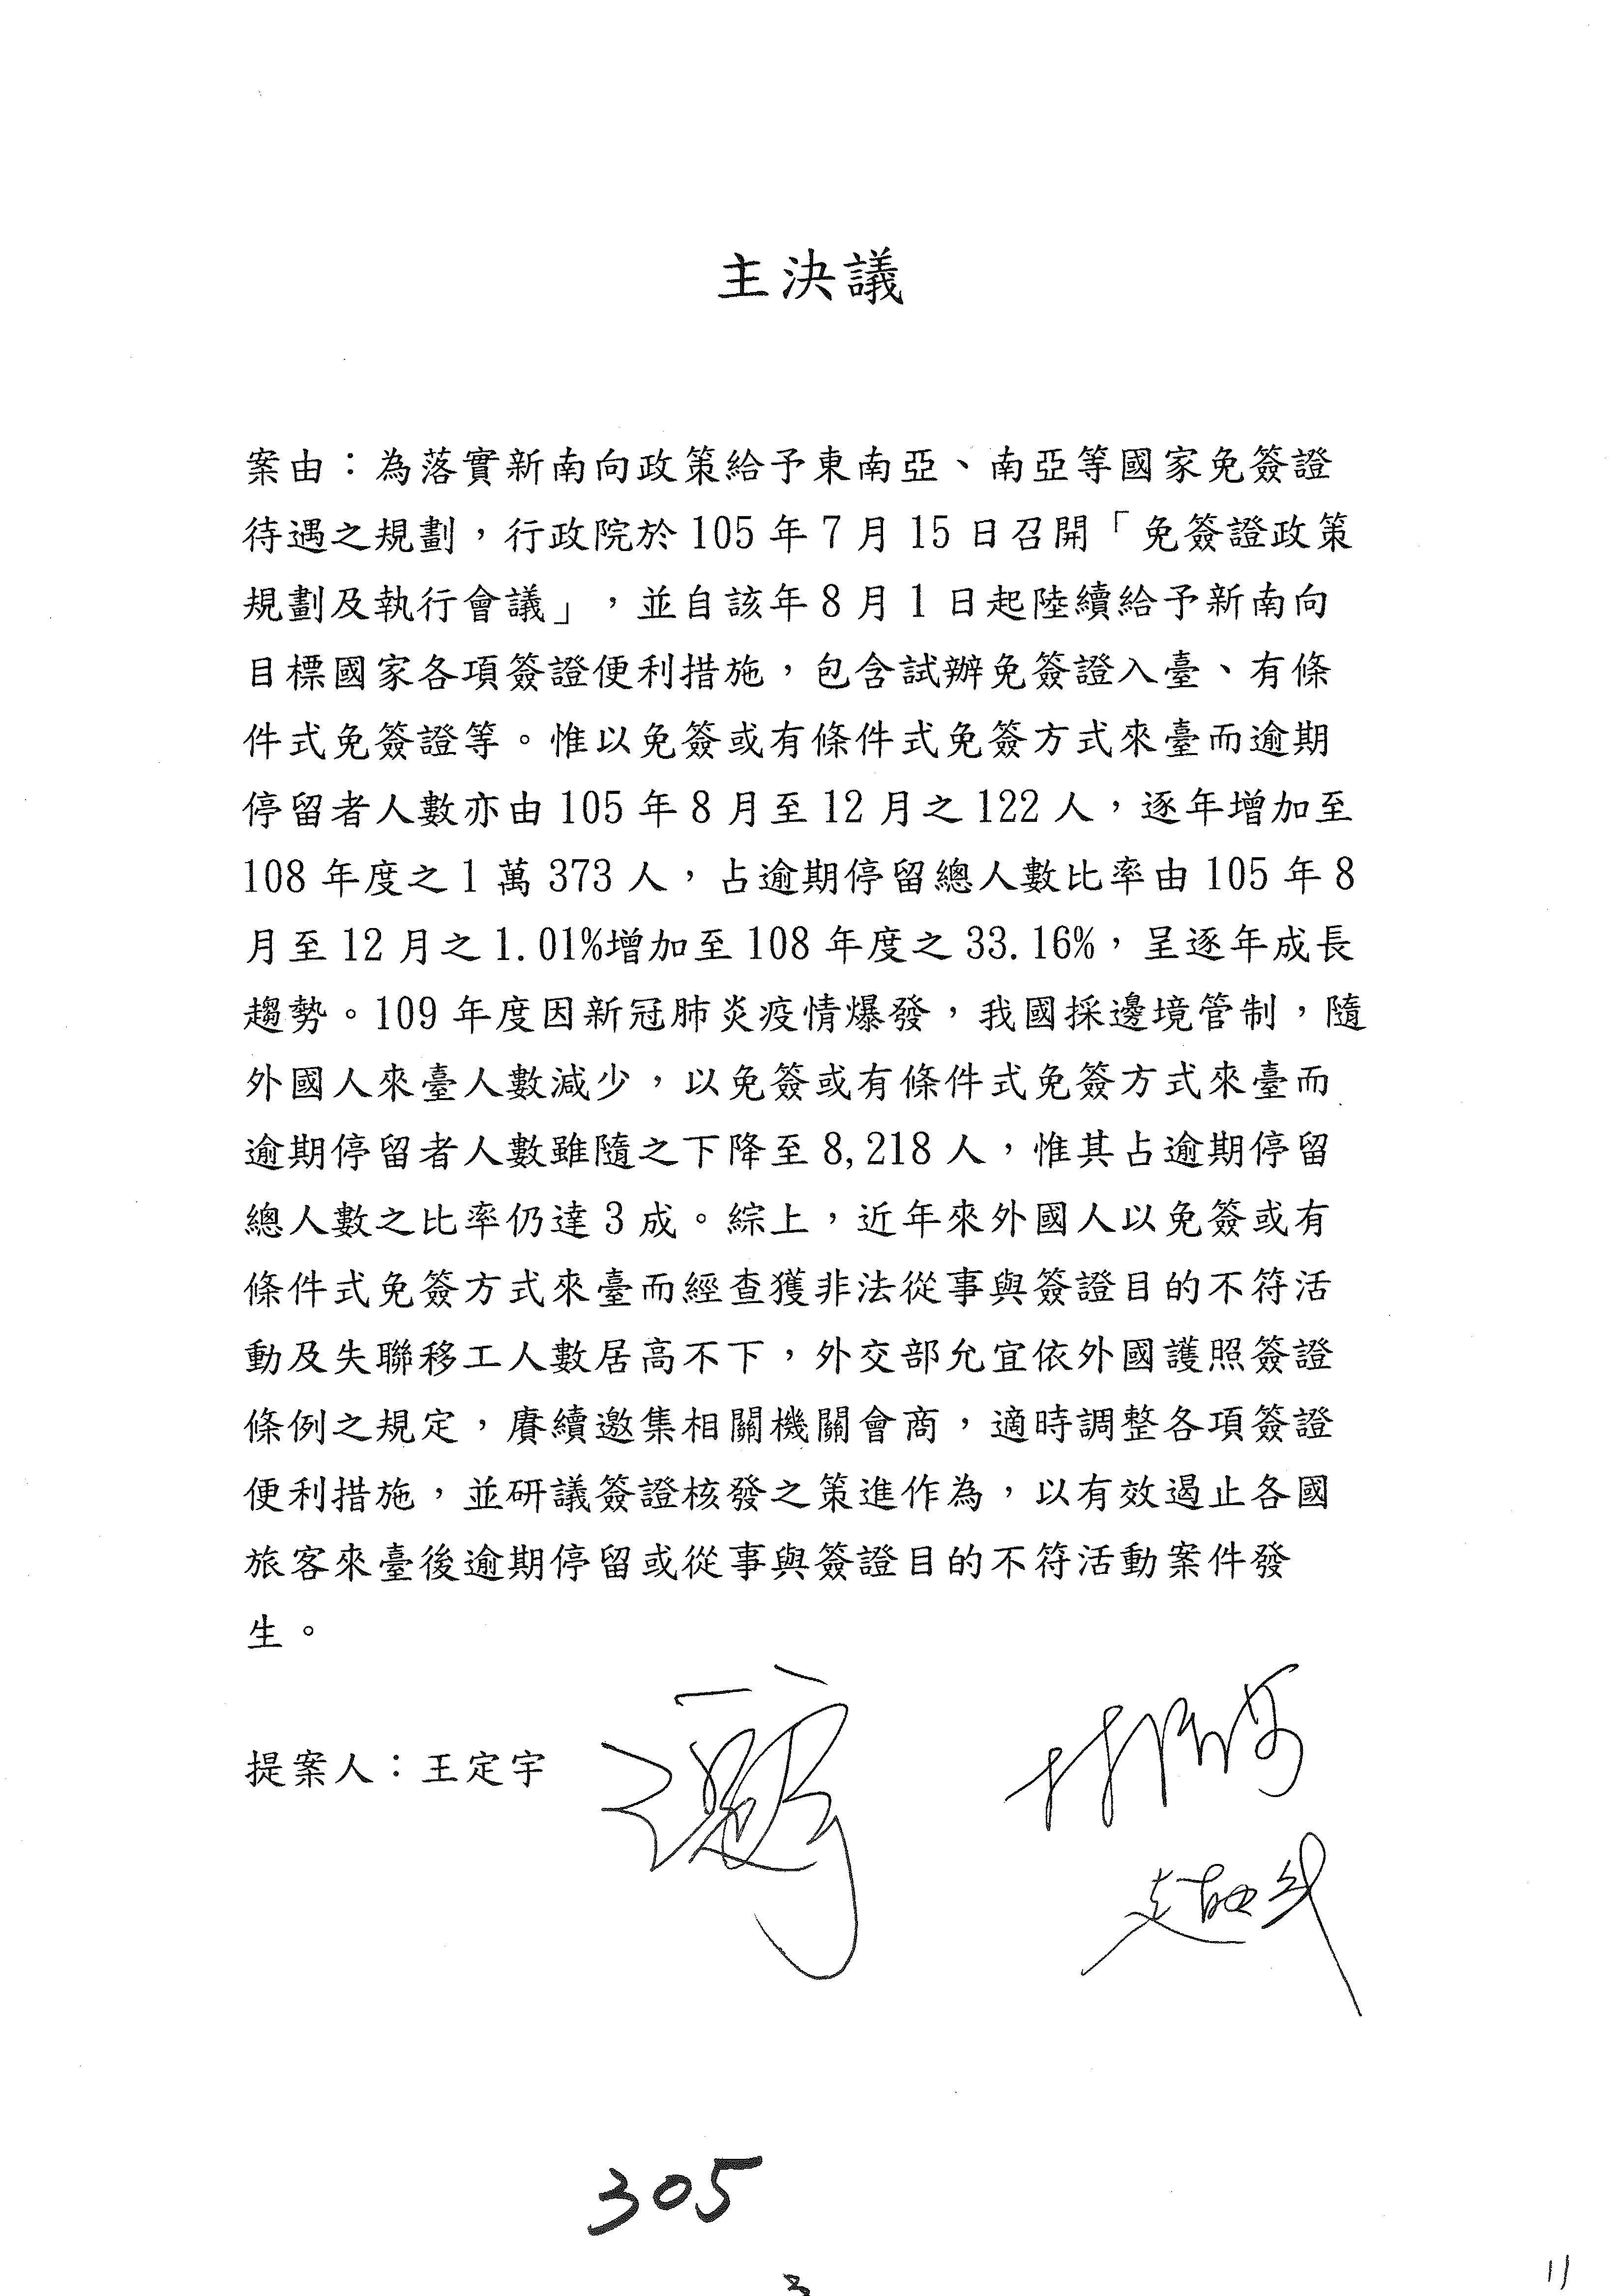 主決議
案由：為落實新南向政策給予東南亞、南亞等國家免簽證
待遇之規劃，行政院於 105 年 7 月 15 日召開「免簽證政策
規劃及執行會議」，並自該年 8 月 1 日起陸續給予新南向
目標國家各項簽證便利措施，包含試辦免簽證入臺、有條
件式免簽證等。惟以免簽或有條件式免簽方式來臺而逾期
停留者人數亦由 105 年 8 月至 12 月之 122 人，逐年增加至
108 年度之 1 萬 373 人，占逾期停留總人數比率由 105 年 8
月至 12 月之 1.01%增加至 108 年度之 33.16%，呈逐年成長
趨勢。109 年度因新冠肺炎疫情爆發，我國採邊境管制，隨
外國人來臺人數減少，以免簽或有條件式免簽方式來臺而
逾期停留者人數雖隨之下降至 8,218 人，惟其占逾期停留
總人數之比率仍達 3 成。綜上，近年來外國人以免簽或有
條件式免簽方式來臺而經查獲非法從事與簽證目的不符活
動及失聯移工人數居高不下，外交部允宜依外國護照簽證
條例之規定，賡續邀集相關機關會商，適時調整各項簽證
便利措施，並研議簽證核發之策進作為，以有效遏止各國
旅客來臺後逾期停留或從事與簽證目的不符活動案件發
生。
提案人：王定宇
305
3
11